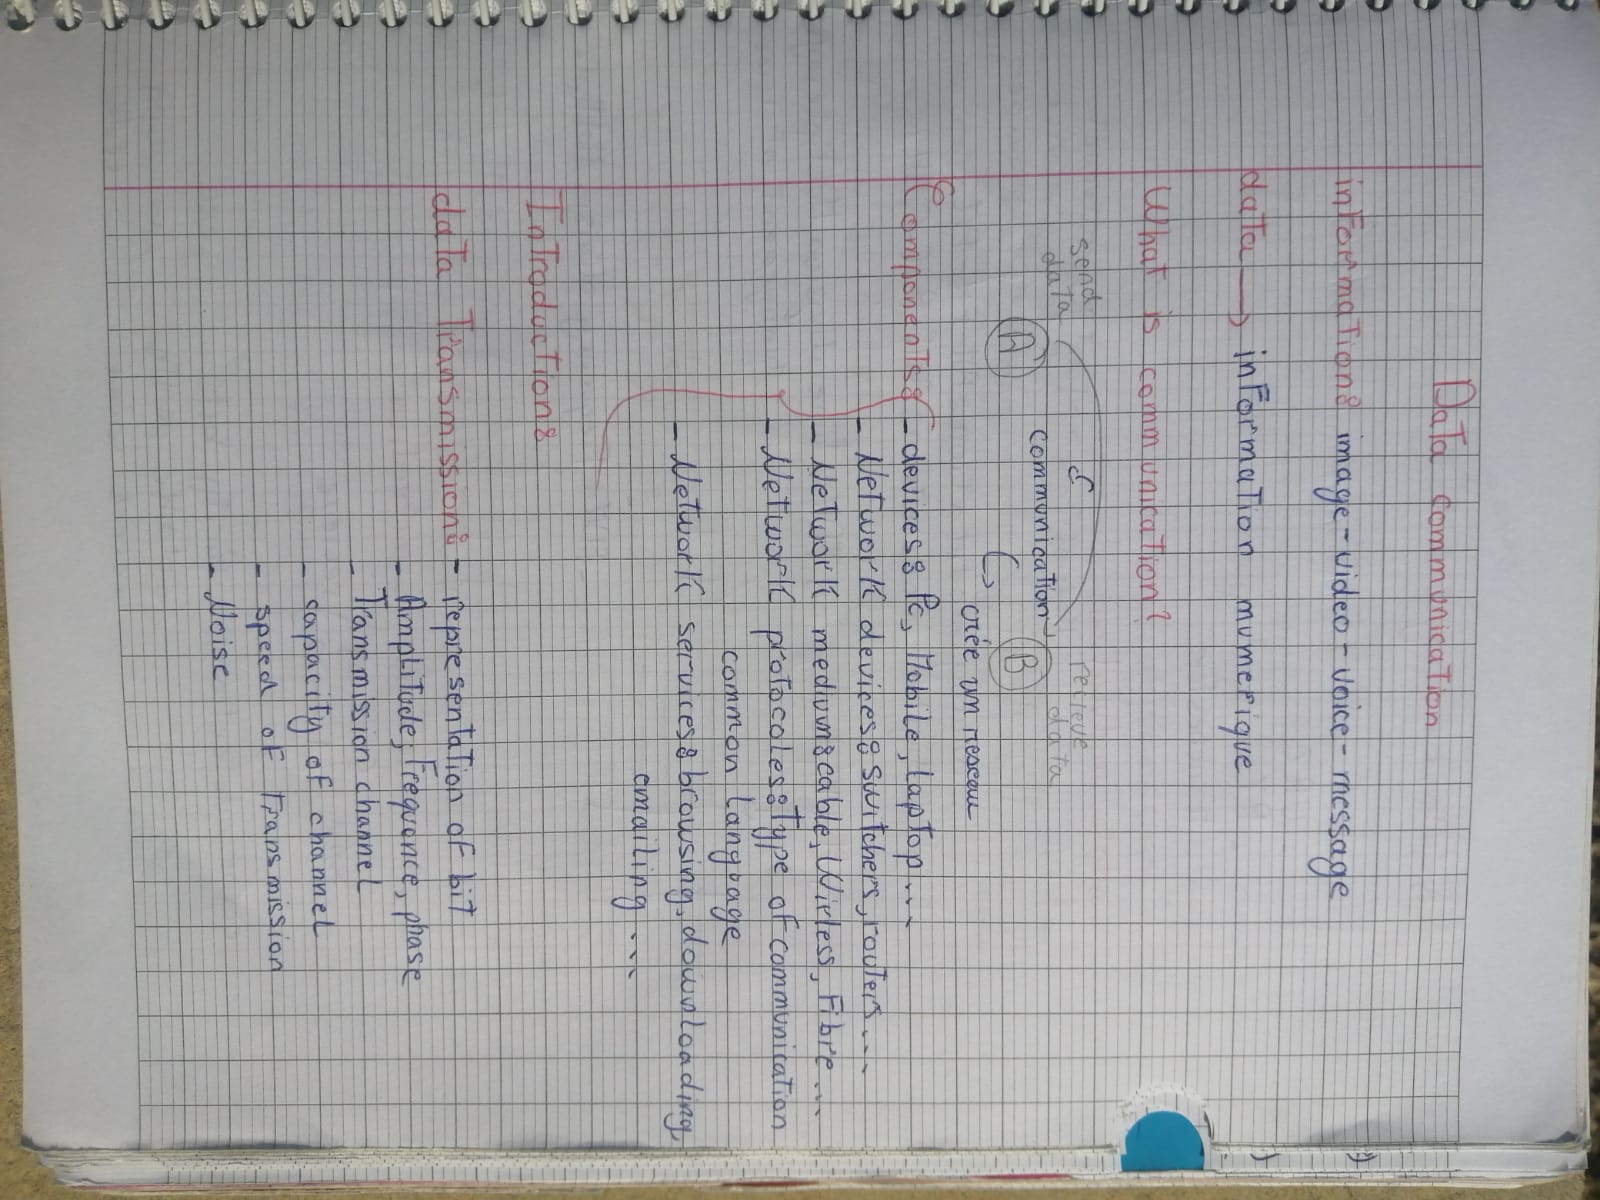 Data communication
information: image - video - voice - message
data → information numerique
What is communication?
send
data
recieve
data
communication
A
B
crée un reseau
Components: - devices: Pc, Mobile, laptop...
- Network devices: switchers, routers...
- Network medium: cable, Wirless, Fibre...
- Network protocoles: Type of communication
common language
- Network services: browsing, downloading,
emailing ...
Introduction:
data Transmission: - representation of bit
- Amplitude, Frequence, phase
- Transmission channel
- capacity of channel
- speed of transmission
- Noise